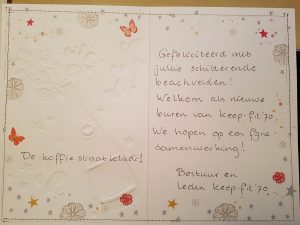 De koffie staat klaar!
Gefeliciteerd met
jullie schitterende
beachvelden!
Welkom als nieuwe
buren van keep-fit '70
We hopen op een fijne
samenwerking!
Bestuur en
leden keep-fit '70